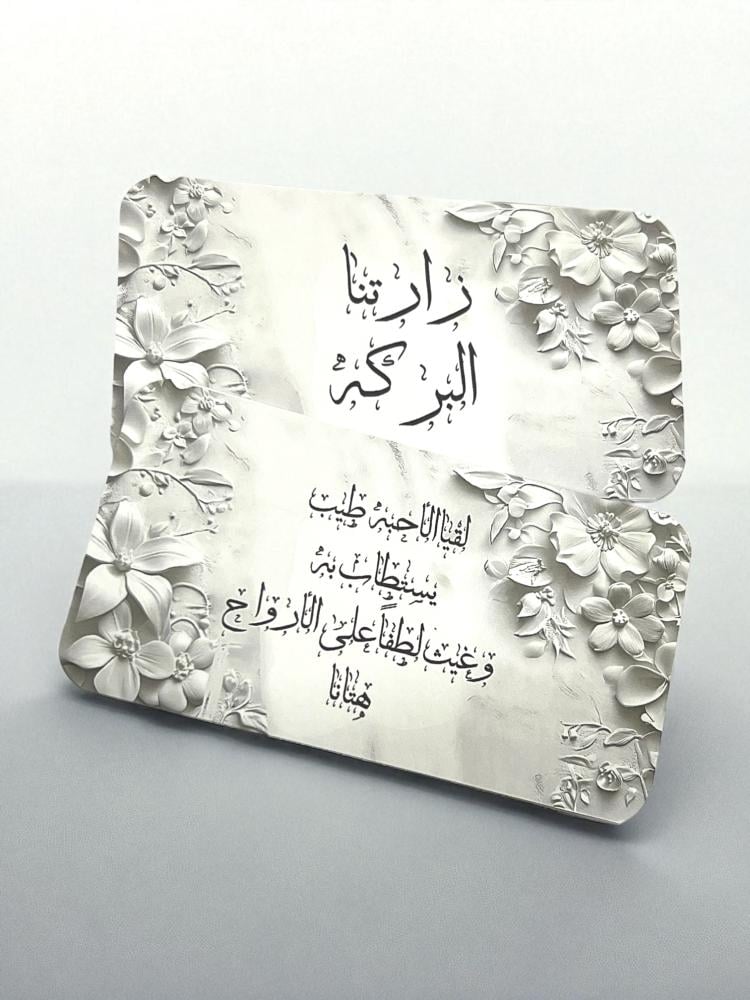 زارتنا
البركه
لقيا الأحبه طيب
يستطاب به
وغيث لطفاً على الأرواح
هتانا